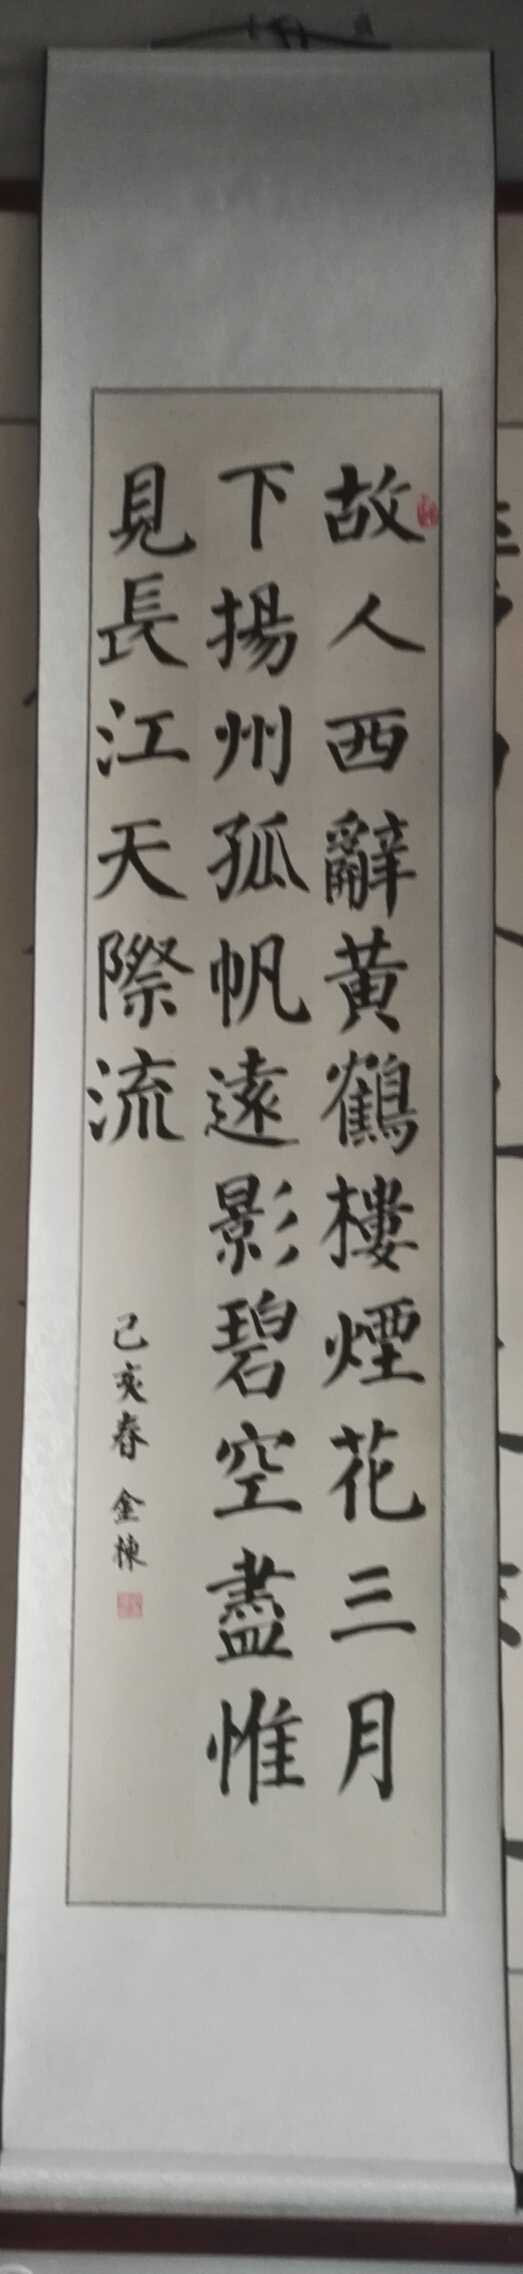 故人西辭黃鶴樓煙花三月
下揚州孤帆遠影碧空盡惟
見長江天際流
己亥春 金棟